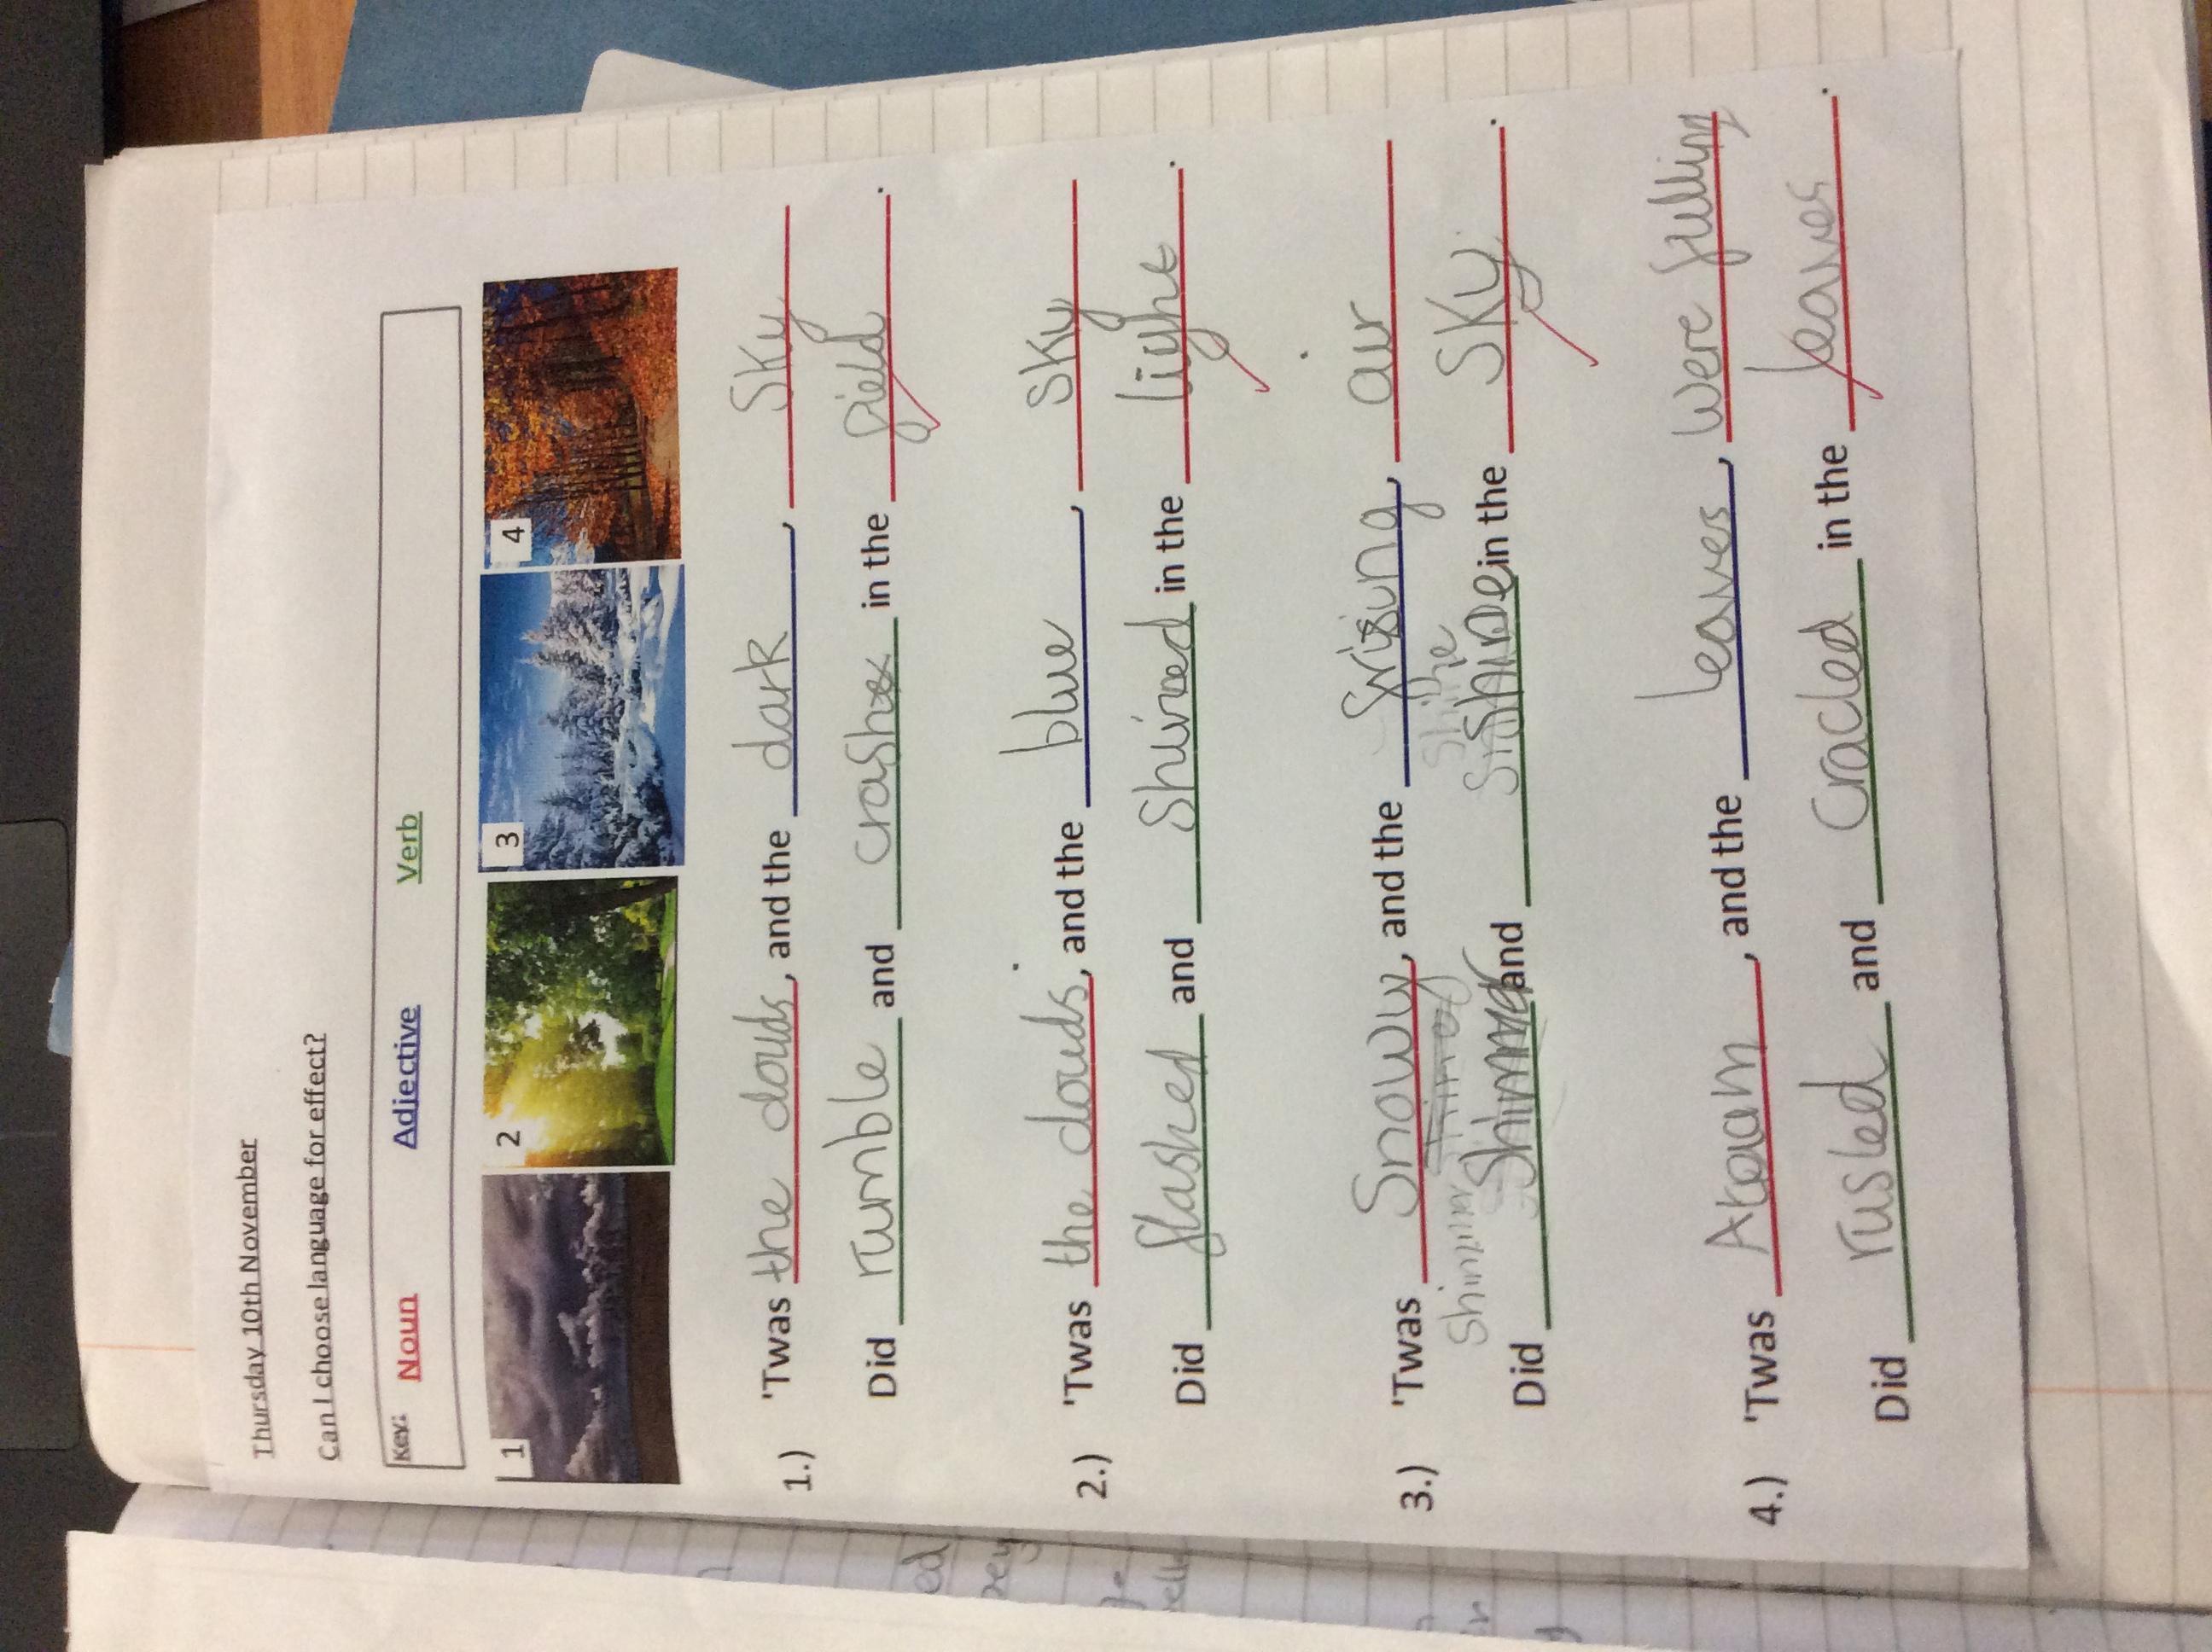 Thursday 10th November
Can I choose language for effect?
Key: Noun Adjective Verb
1 2 3 4
1.) 'Twas the clouds, and the dark, Sky
Did rumble and crashes in the field.
2.) 'Twas the clouds, and the blue, sky
Did flashed and Shined in the light.
3.) 'Twas Snowy, and the, air
Shimmer Shine
Did Shimmer and Shine in the Sky.
4.) 'Twas, and the leaves, were fulling
Did rusled and Cracled in the leaves.